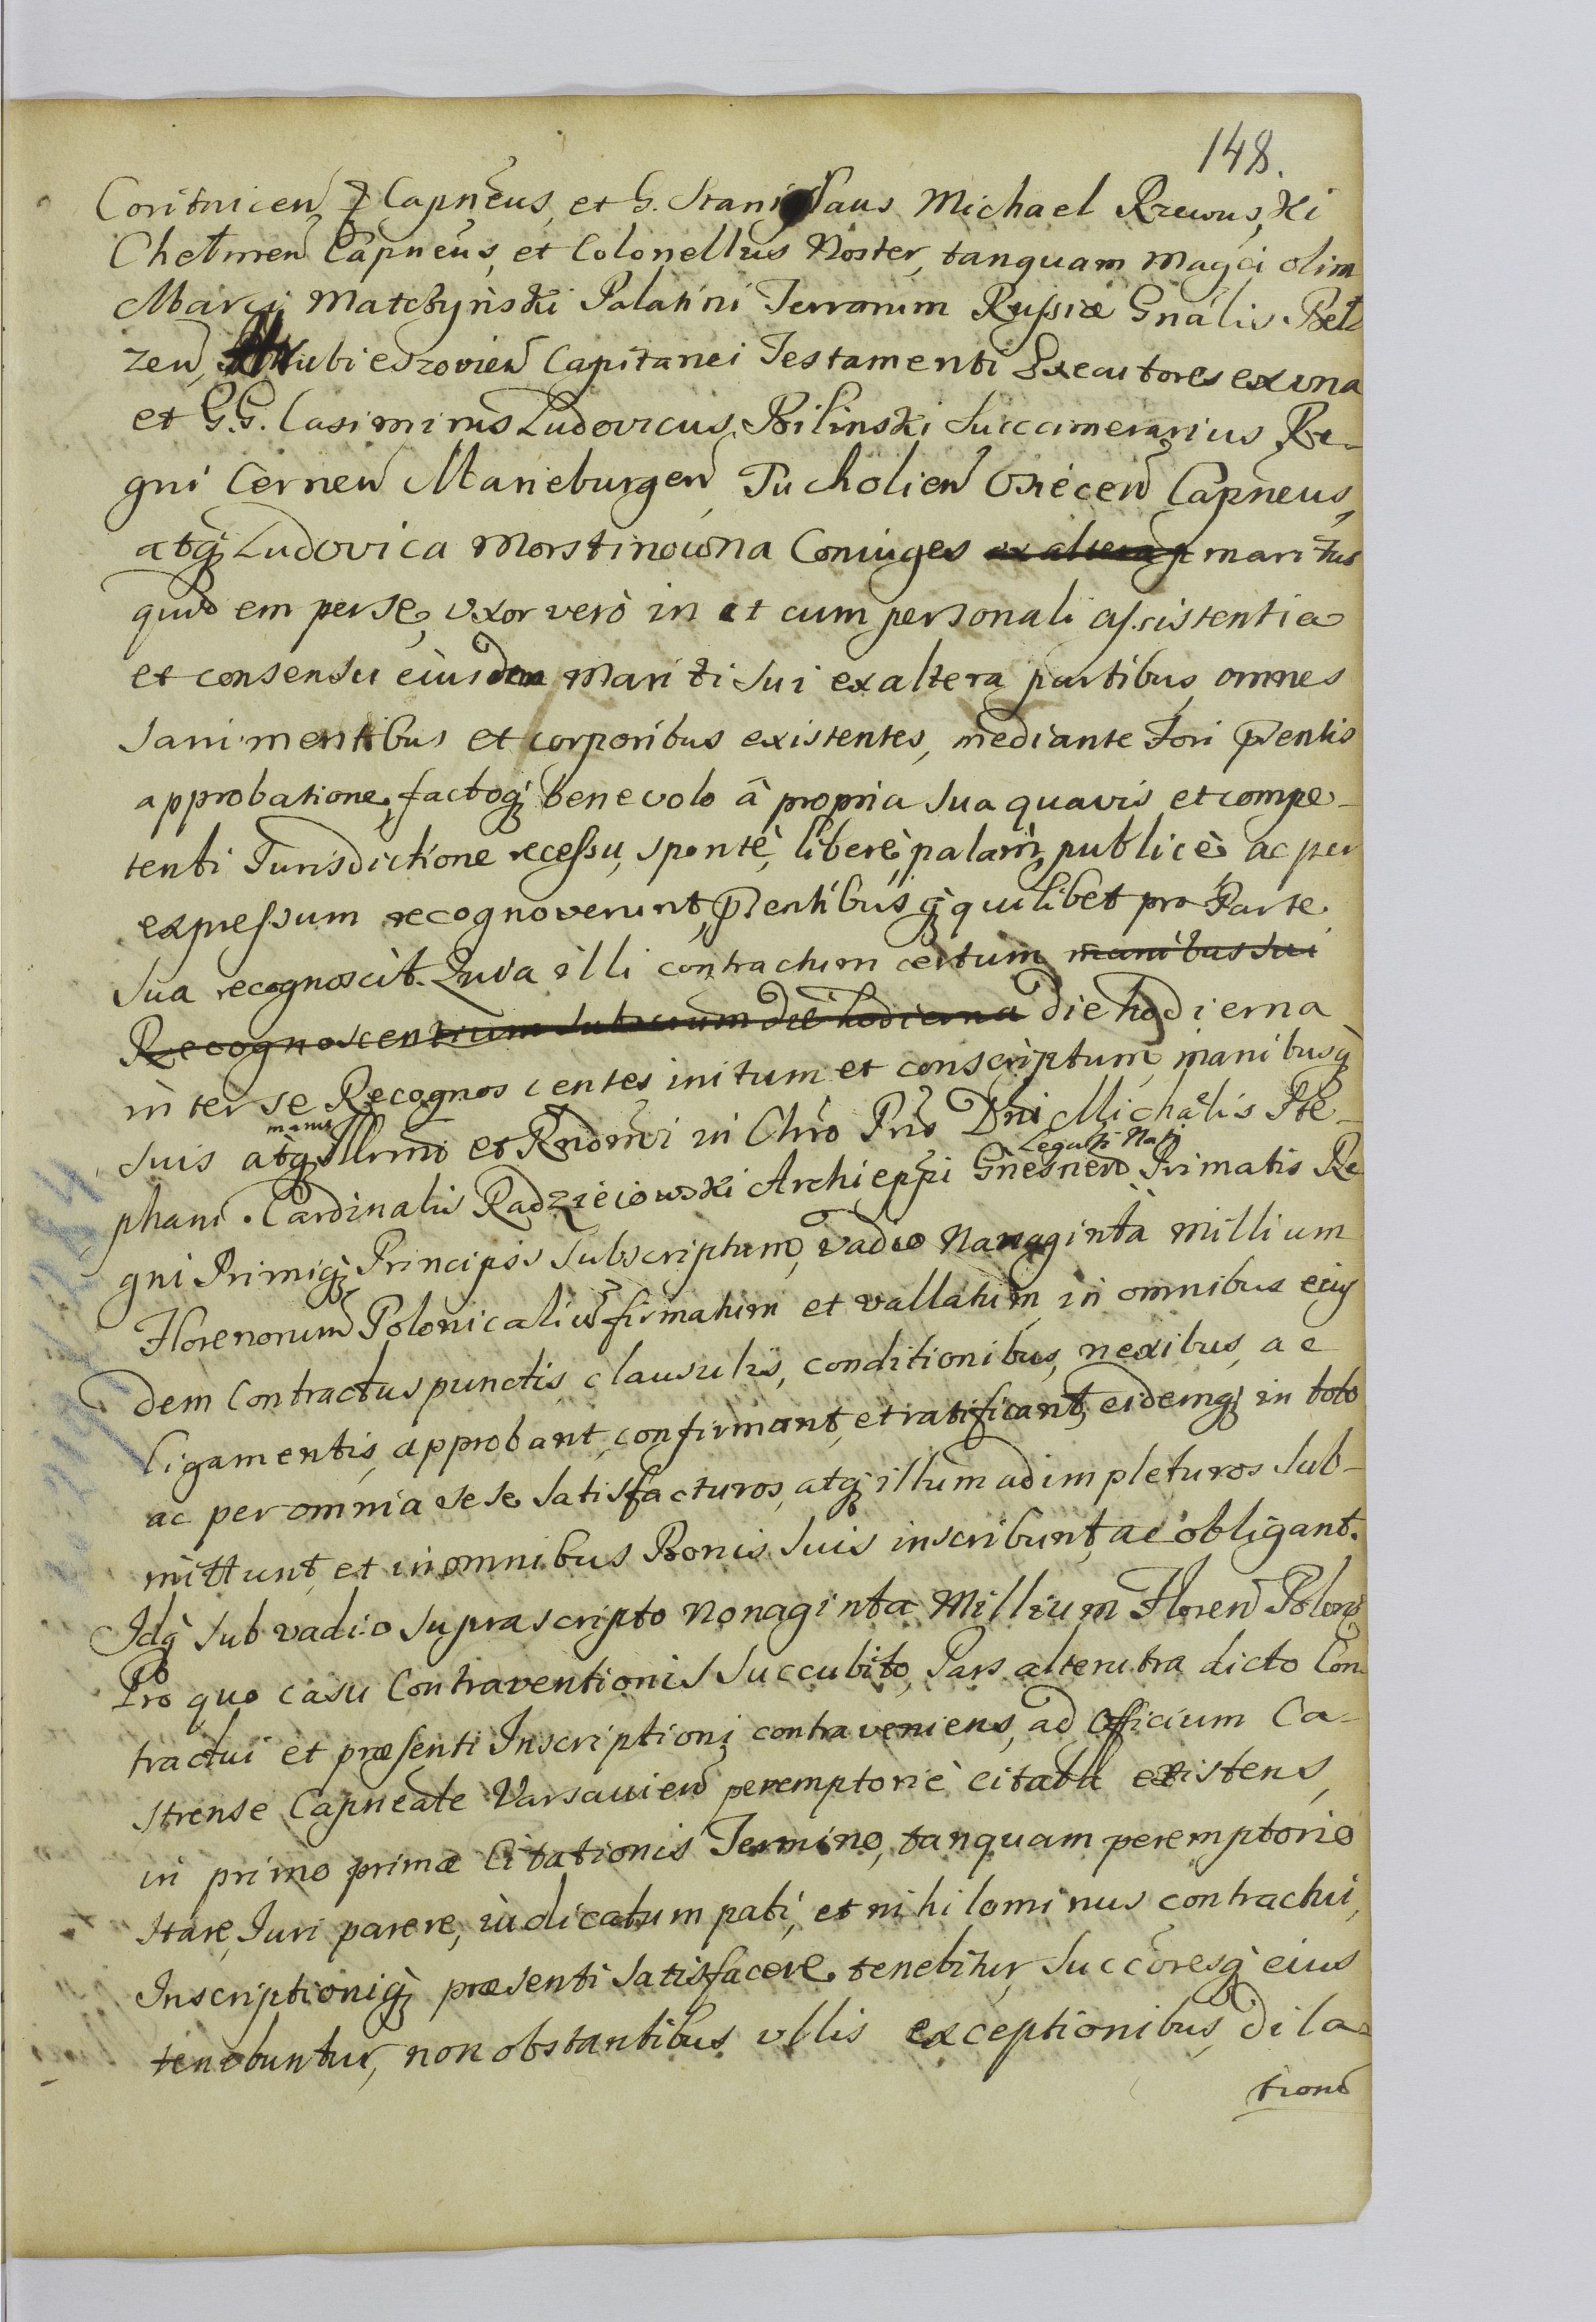 148.
Coritnicen Capneus, et G. Stanislaus Michael Rzewuski
Chelmen Capneus, et Colonellus Noster, tanquam Magci olim
Marci Matczyński Palatini Terrarum Russiæ Gnalis Bel
zen, Hrubieszovien Capitanei Testamenti Executores ex una
et G.G. Casimirus Ludovicus Bilinski Succamerarius Re-
gni Cernen Marieburgen Tucholien Osiecen Capneus,
atq; Ludovica Morstinowna Coniuges ex altera maritus
quidem per se, uxor verò in et cum personali assistentia
et consensu eiusdem Mariti Sui ex altera partibus, omnes
Sani mentibus et corporibus existentes, mediante Fori pñtis
approbatione, factoq; benevolo à propria Sua quavis et compe-
tenti Jurisdictione recessu, spontè, liberè, palàm publicè ac per
expressum recognoverunt, pñtibusq; quilibet pro Parte
Sua recognoscit. Quia illi contractum certum manibus sui
Recognoscentium subscriptum die hodierna die hodierna
inter se Recognoscentes initum et conscriptum, manibusq;
suis atq; manu Illrmi et Rndmi in Chro Pris Dni Michaelis Ste-
phani Cardinalis Radzieiowski Archieppi Gnesnen Legati Nati Primatis Re
gni Primiq; Principis Subscriptum, vadio Nonaginta millium
Florenorum Polonicaliu firmatum et vallatum, in omnibus eius
dem Contractus punctis, clausulis, conditionibus, nexibus, ac
ligamentis, approbant, confirmant, et ratificant, eidemq; in toto
ac per omnia sese Satisfacturos, atq; illum adimpleturos Sub-
mittunt, et in omnibus Bonis Suis inscribunt, ac obligant.
Idq; Sub vadio suprascripto Nonaginta Millium Floren Polon
Pro quo casu Contraventionis Succubito, Pars alterutra dicto Con
tractui et præsenti Inscriptioni contraveniens, ad Officium Ca-
strense Capneale Varsavien peremptoriè citata existens,
in primo primæ Citationis Termino, tanquam peremptorio
Stare, Juri parere, iudicatum pati, et nihilominus contractui,
Inscriptioniq; præsenti Satisfacere tenebitur, Succoresq; eius
tenebuntur, non obstantibus ullis exceptionibus, dila-
tionib